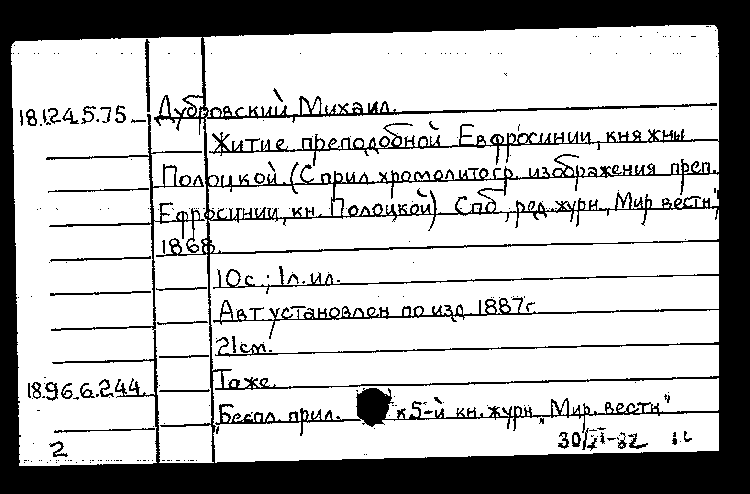 18.124.5.75 Дубровский, Михаил.
Житие преподобной Евфросинии, княжны
Полоцкой. (С прил. хромолитогр. изображения преп.
Ефросинии, кн. Полоцкой). Спб, ред. журн. „Мир. вестн.",
1868.
10с.; 1л.ил.
Авт. установлен по изд. 1887г.
21см.
18.96.6.244. То же.
"Беспл. прил. к 5-й кн. журн. „Мир. вестн"
2 30/VI-82